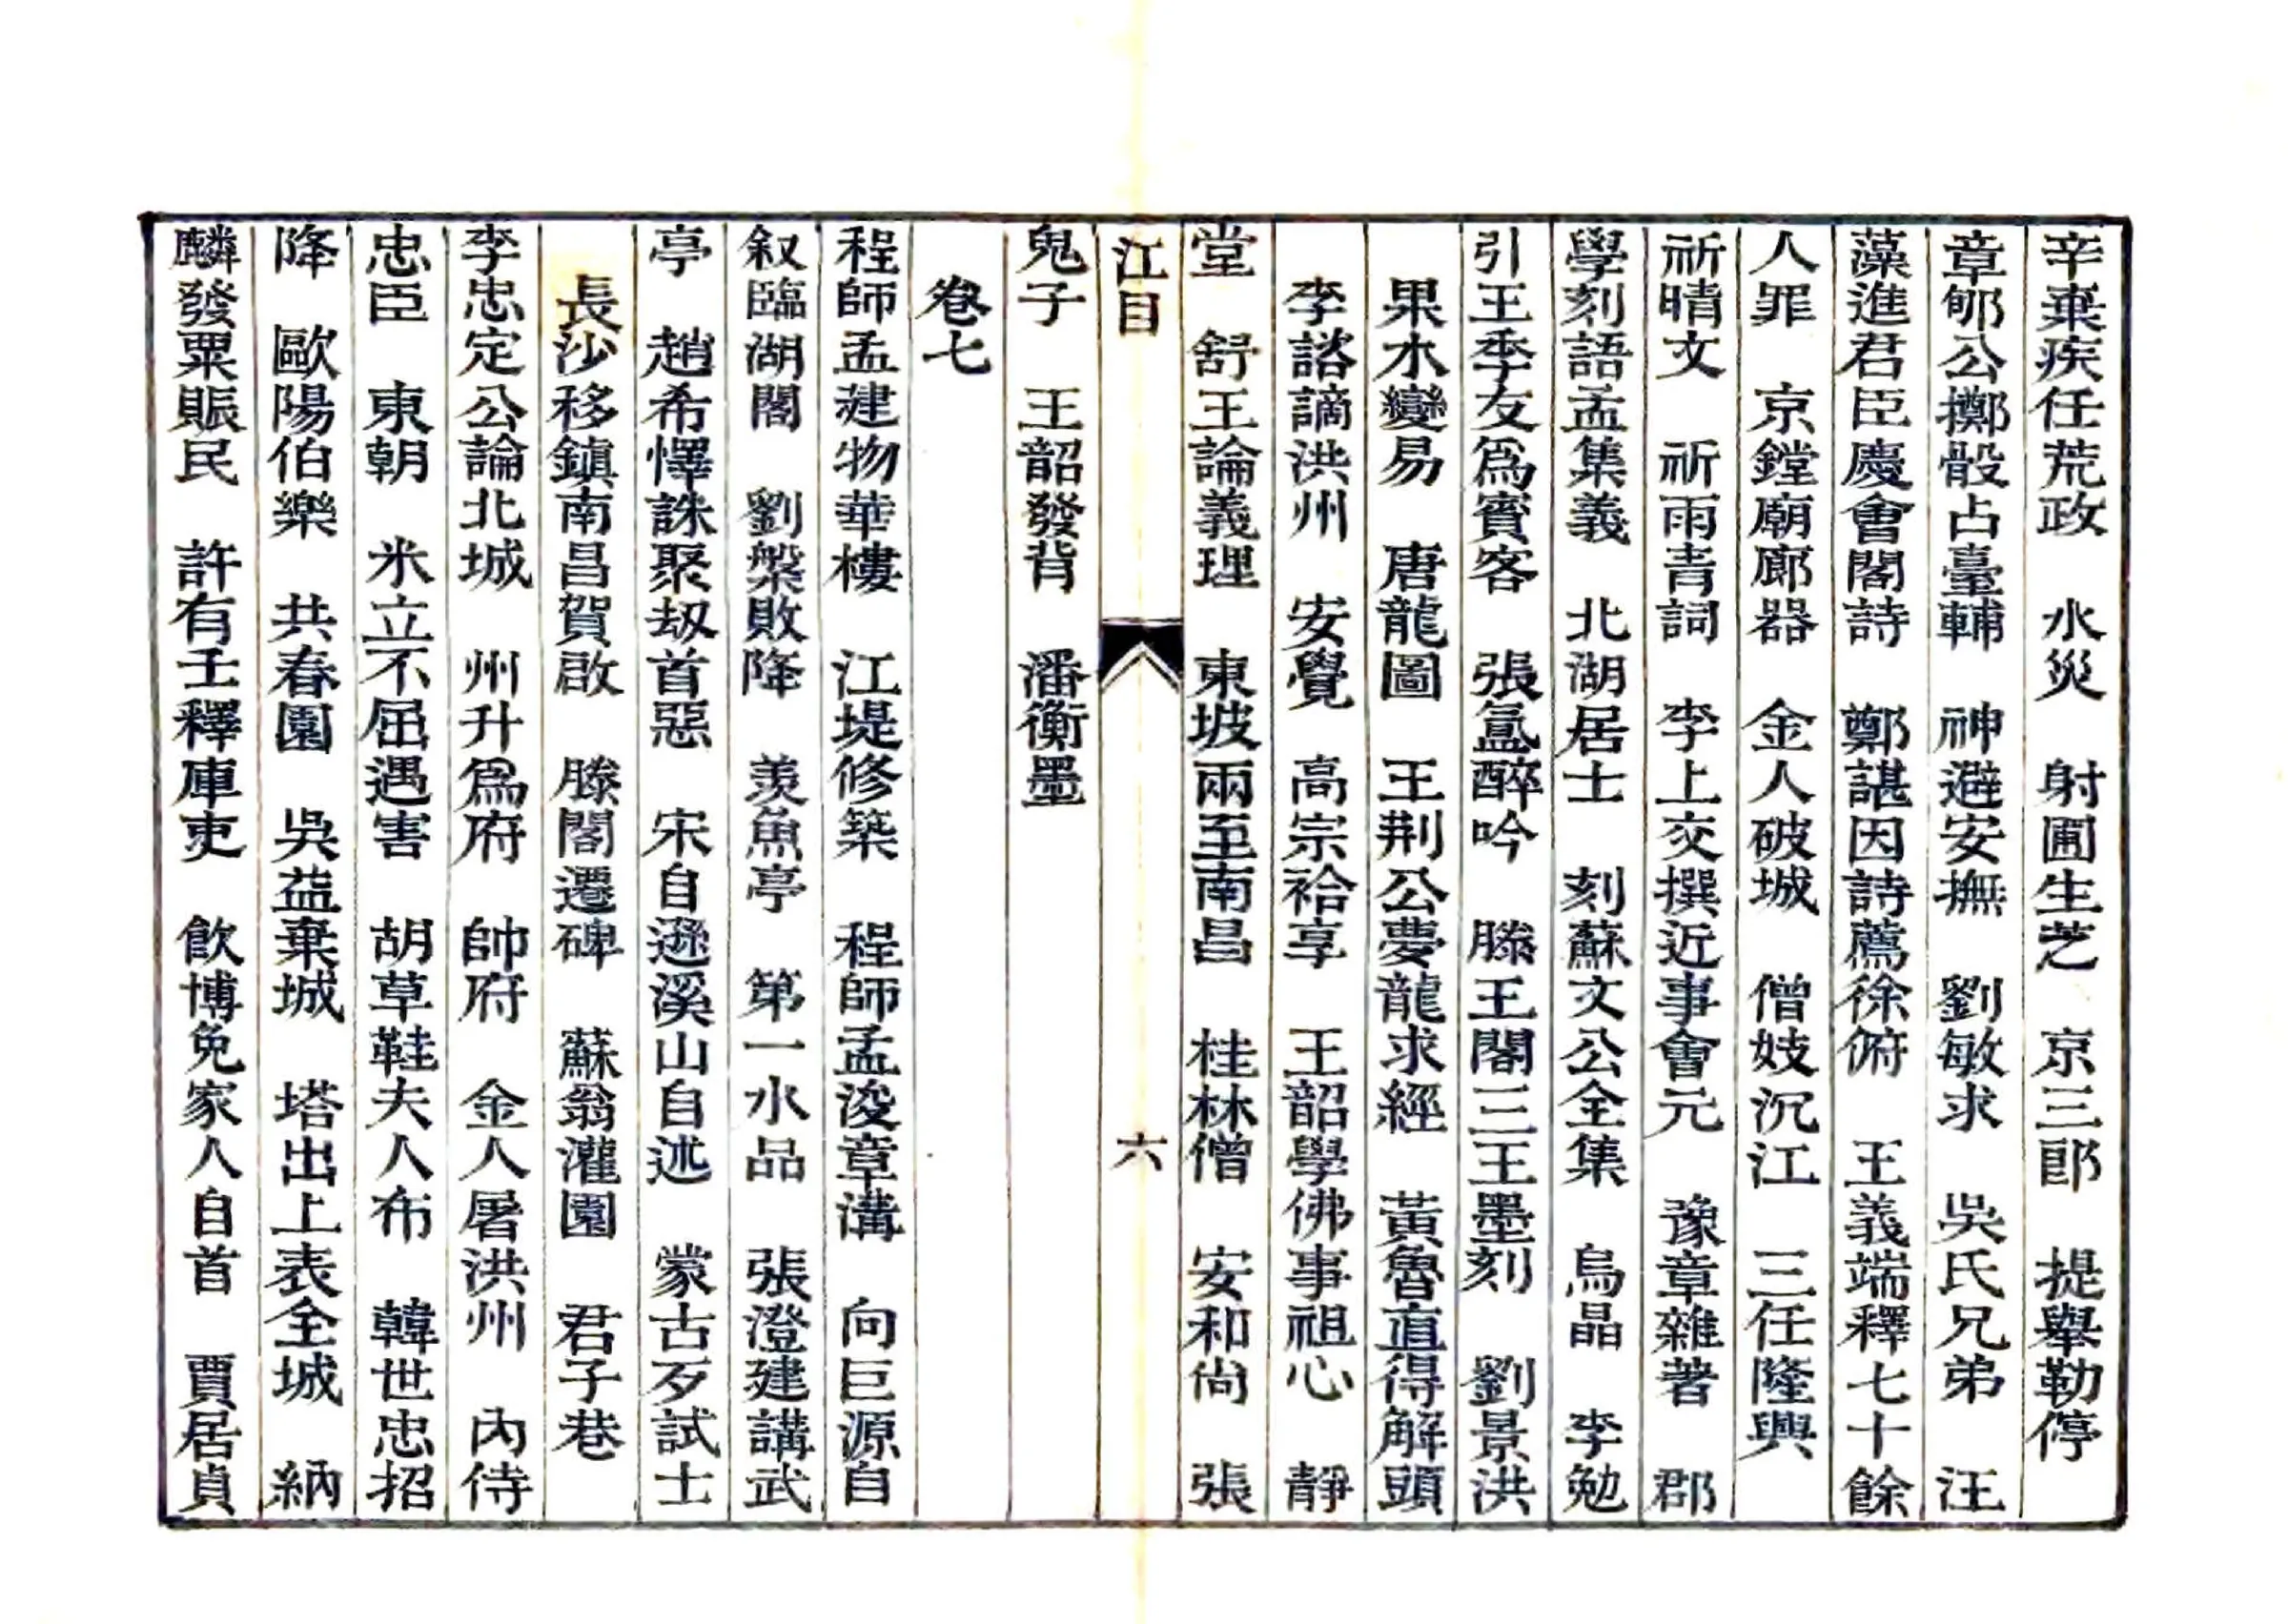 辛棄疾任荒政　水災　射圃生芝　京三郎　提舉勒停
章郇公擲骰占臺輔　神避安撫　劉敏求　吳氏兄弟　汪
藻進君臣慶會閣詩　鄭諶因詩薦徐俯　王義端釋七十餘
人罪　京鏜廟廊器　金人破城　僧妓沉江　三任隆興
祈晴文　祈雨青詞　李上交撰近事會元　豫章雜著　郡
學刻語孟集義　北湖居士　刻蘇文公全集　烏晶　李勉
引王季友爲賓客　張氳醉吟　滕王閣三王墨刻　劉景洪
果木變易　唐龍圖　王荆公夢龍求經　黃魯直得解頭
李諮謫洪州　安覺　高宗祫享　王韶學佛事祖心　靜
堂　舒王論義理　東坡兩至南昌　桂林僧　安和尙　張
江目
六
鬼子　王韶發背　潘衡墨
卷七
程師孟建物華樓　江堤修築　程師孟浚章溝　向巨源自
叙臨湖閣　劉槃敗降　羡魚亭　第一水品　張澄建講武
亭　趙希懌誅聚刼首惡　宋自遜溪山自述　蒙古歹試士
長沙移鎭南昌賀啟　滕閣遷碑　蘇翁灌園　君子巷
李忠定公論北城　州升爲府　帥府　金人屠洪州　內侍
忠臣　東朝　米立不屈遇害　胡草鞋夫人布　韓世忠招
降　歐陽伯樂　共春園　吳益棄城　塔出上表全城　納
麟發粟賑民　許有壬釋庫吏　飮博免家人自首　賈居貞